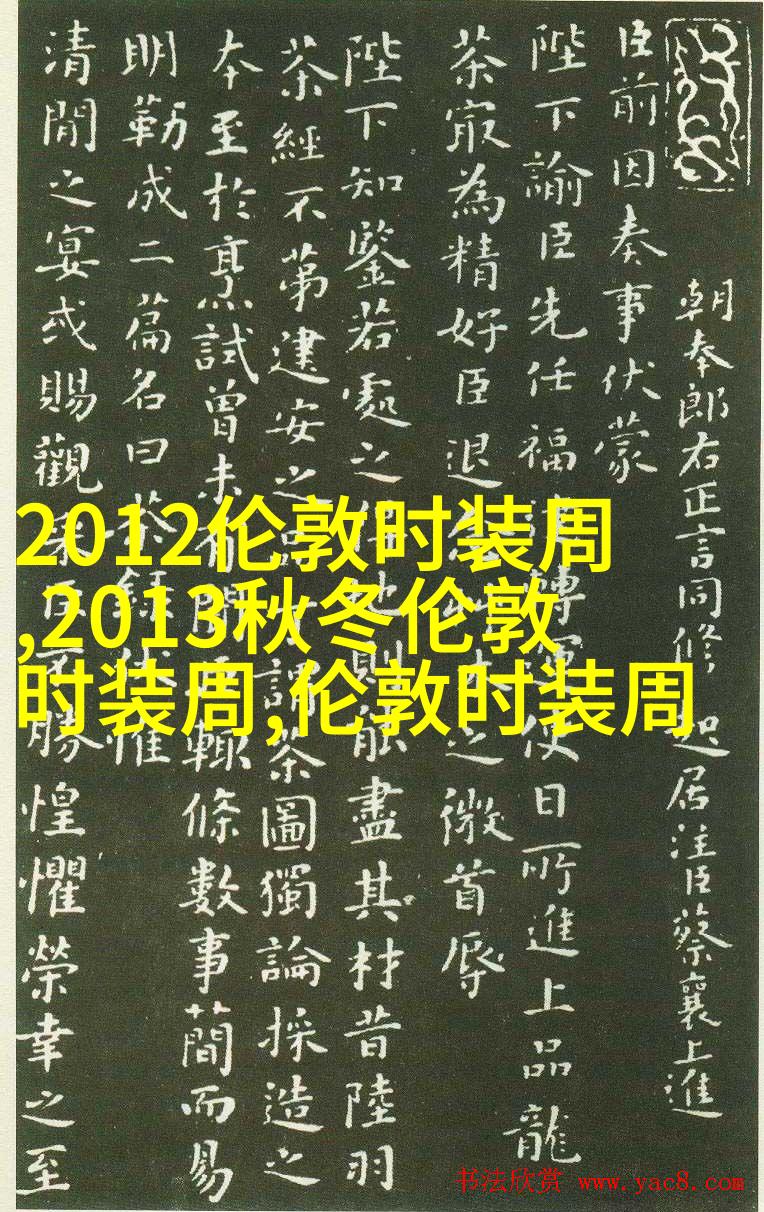 朝奉郎右正言同修起居注臣蔡襄上進
臣前因奏事伏蒙
陛下諭臣先任福建轉運使日所進上品龍
茶㝡為精好臣退念草木之微首辱
陛下知鑒若處之得地則能盡其材昔陸羽
茶經不第建安之品丁謂茶圖獨論採造之
本至於烹試曾未有聞臣輒條數事簡而易
明勒成二篇名曰茶錄伏惟
清閒之宴或賜觀采臣不勝惶懼榮幸之至
2012伦敦时装周
,2013秋冬伦敦
时装周,伦敦时装周
书法欣赏 www.yac8.com